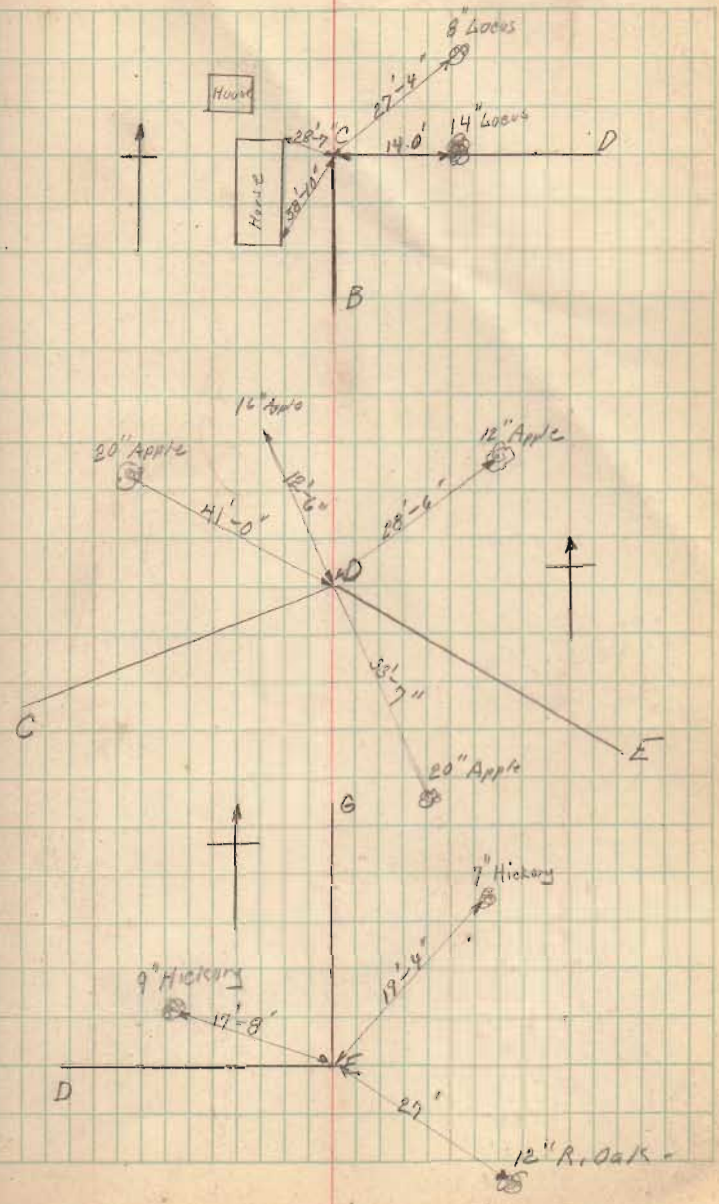 8" Locus
House
27'-4"
28'-7"
C
14" Locus
14.0'
D
House
38'-10"
B
16" Aple
20" Apple
12" Apple
12'-6"
41'-0"
28'-6"
D
33'-7"
C
E
20" Apple
G
7" Hickory
19'-4"
9" Hickory
17'-8"
E
D
27'
12" R. Oak -